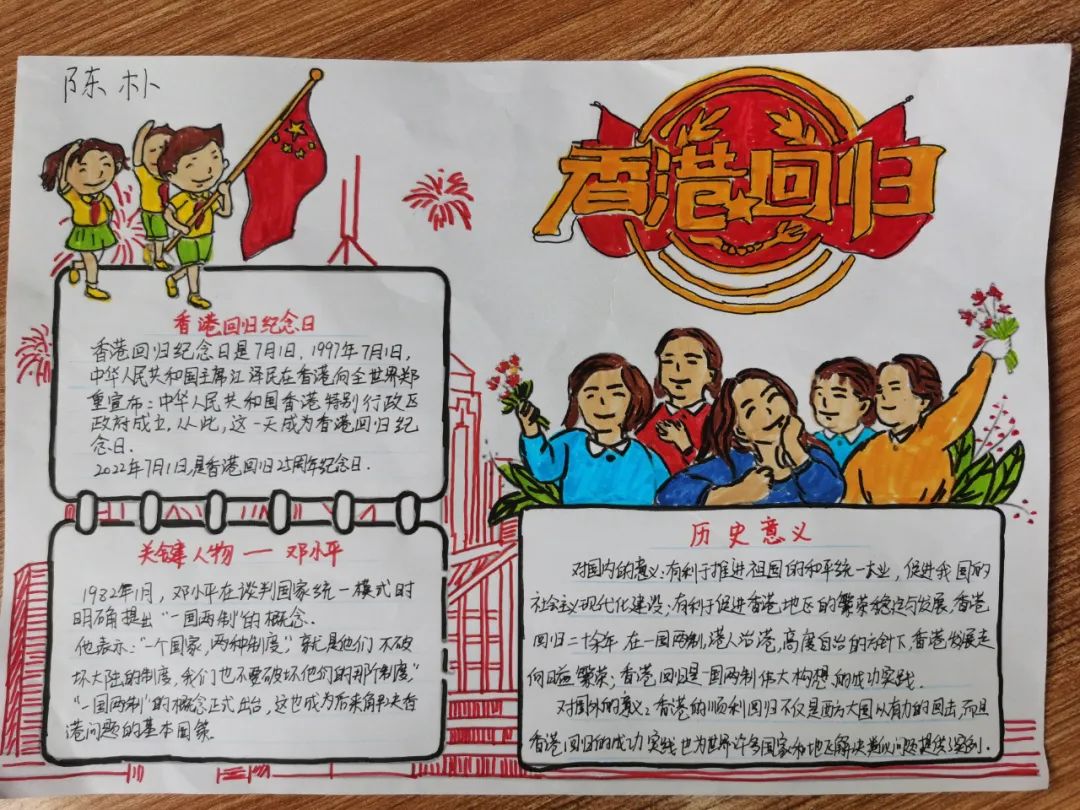 陈朴
香港回归
香港回归纪念日
香港回归纪念日是7月1日，1997年7月1日，
中华人民共和国主席江泽民在香港向全世界郑
重宣布：中华人民共和国香港特别行政区
政府成立，从此，这一天成为香港回归纪
念日．
2022年7月1日，是香港回归25周年纪念日．
关键人物——邓小平
1982年1月，邓小平在谈判国家统一模式时
明确提出“一国两制”的概念．
他表示：“一个国家，两种制度，”就是他们不破
坏大陆的制度，我们也不要破坏他们的那个制度”
“一国两制”的概念正式出台，这也成为后来解决香
港问题的基本国策．
历史意义
对国内的意义：有利于推进祖国的和平统一大业，促进我国的
社会主义现代化建设；有利于促进香港地区的繁荣稳定与发展．香港
回归二十余年，在一国两制，港人治港，高度自治的方针下，香港发展走
向日益繁荣；香港回归是一国两制伟大构想的成功实践．
对国外的意义：香港的顺利回归不仅是西方大国从有力的回击，而且
香港回归的成功实践也为世界许多国家和地区解决类似问题提供了案例．